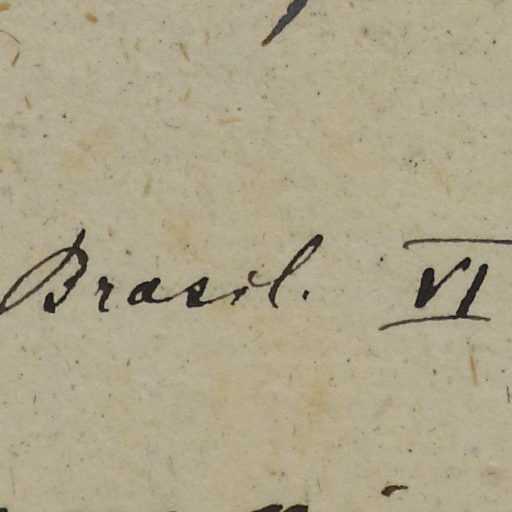 Brasil. VI